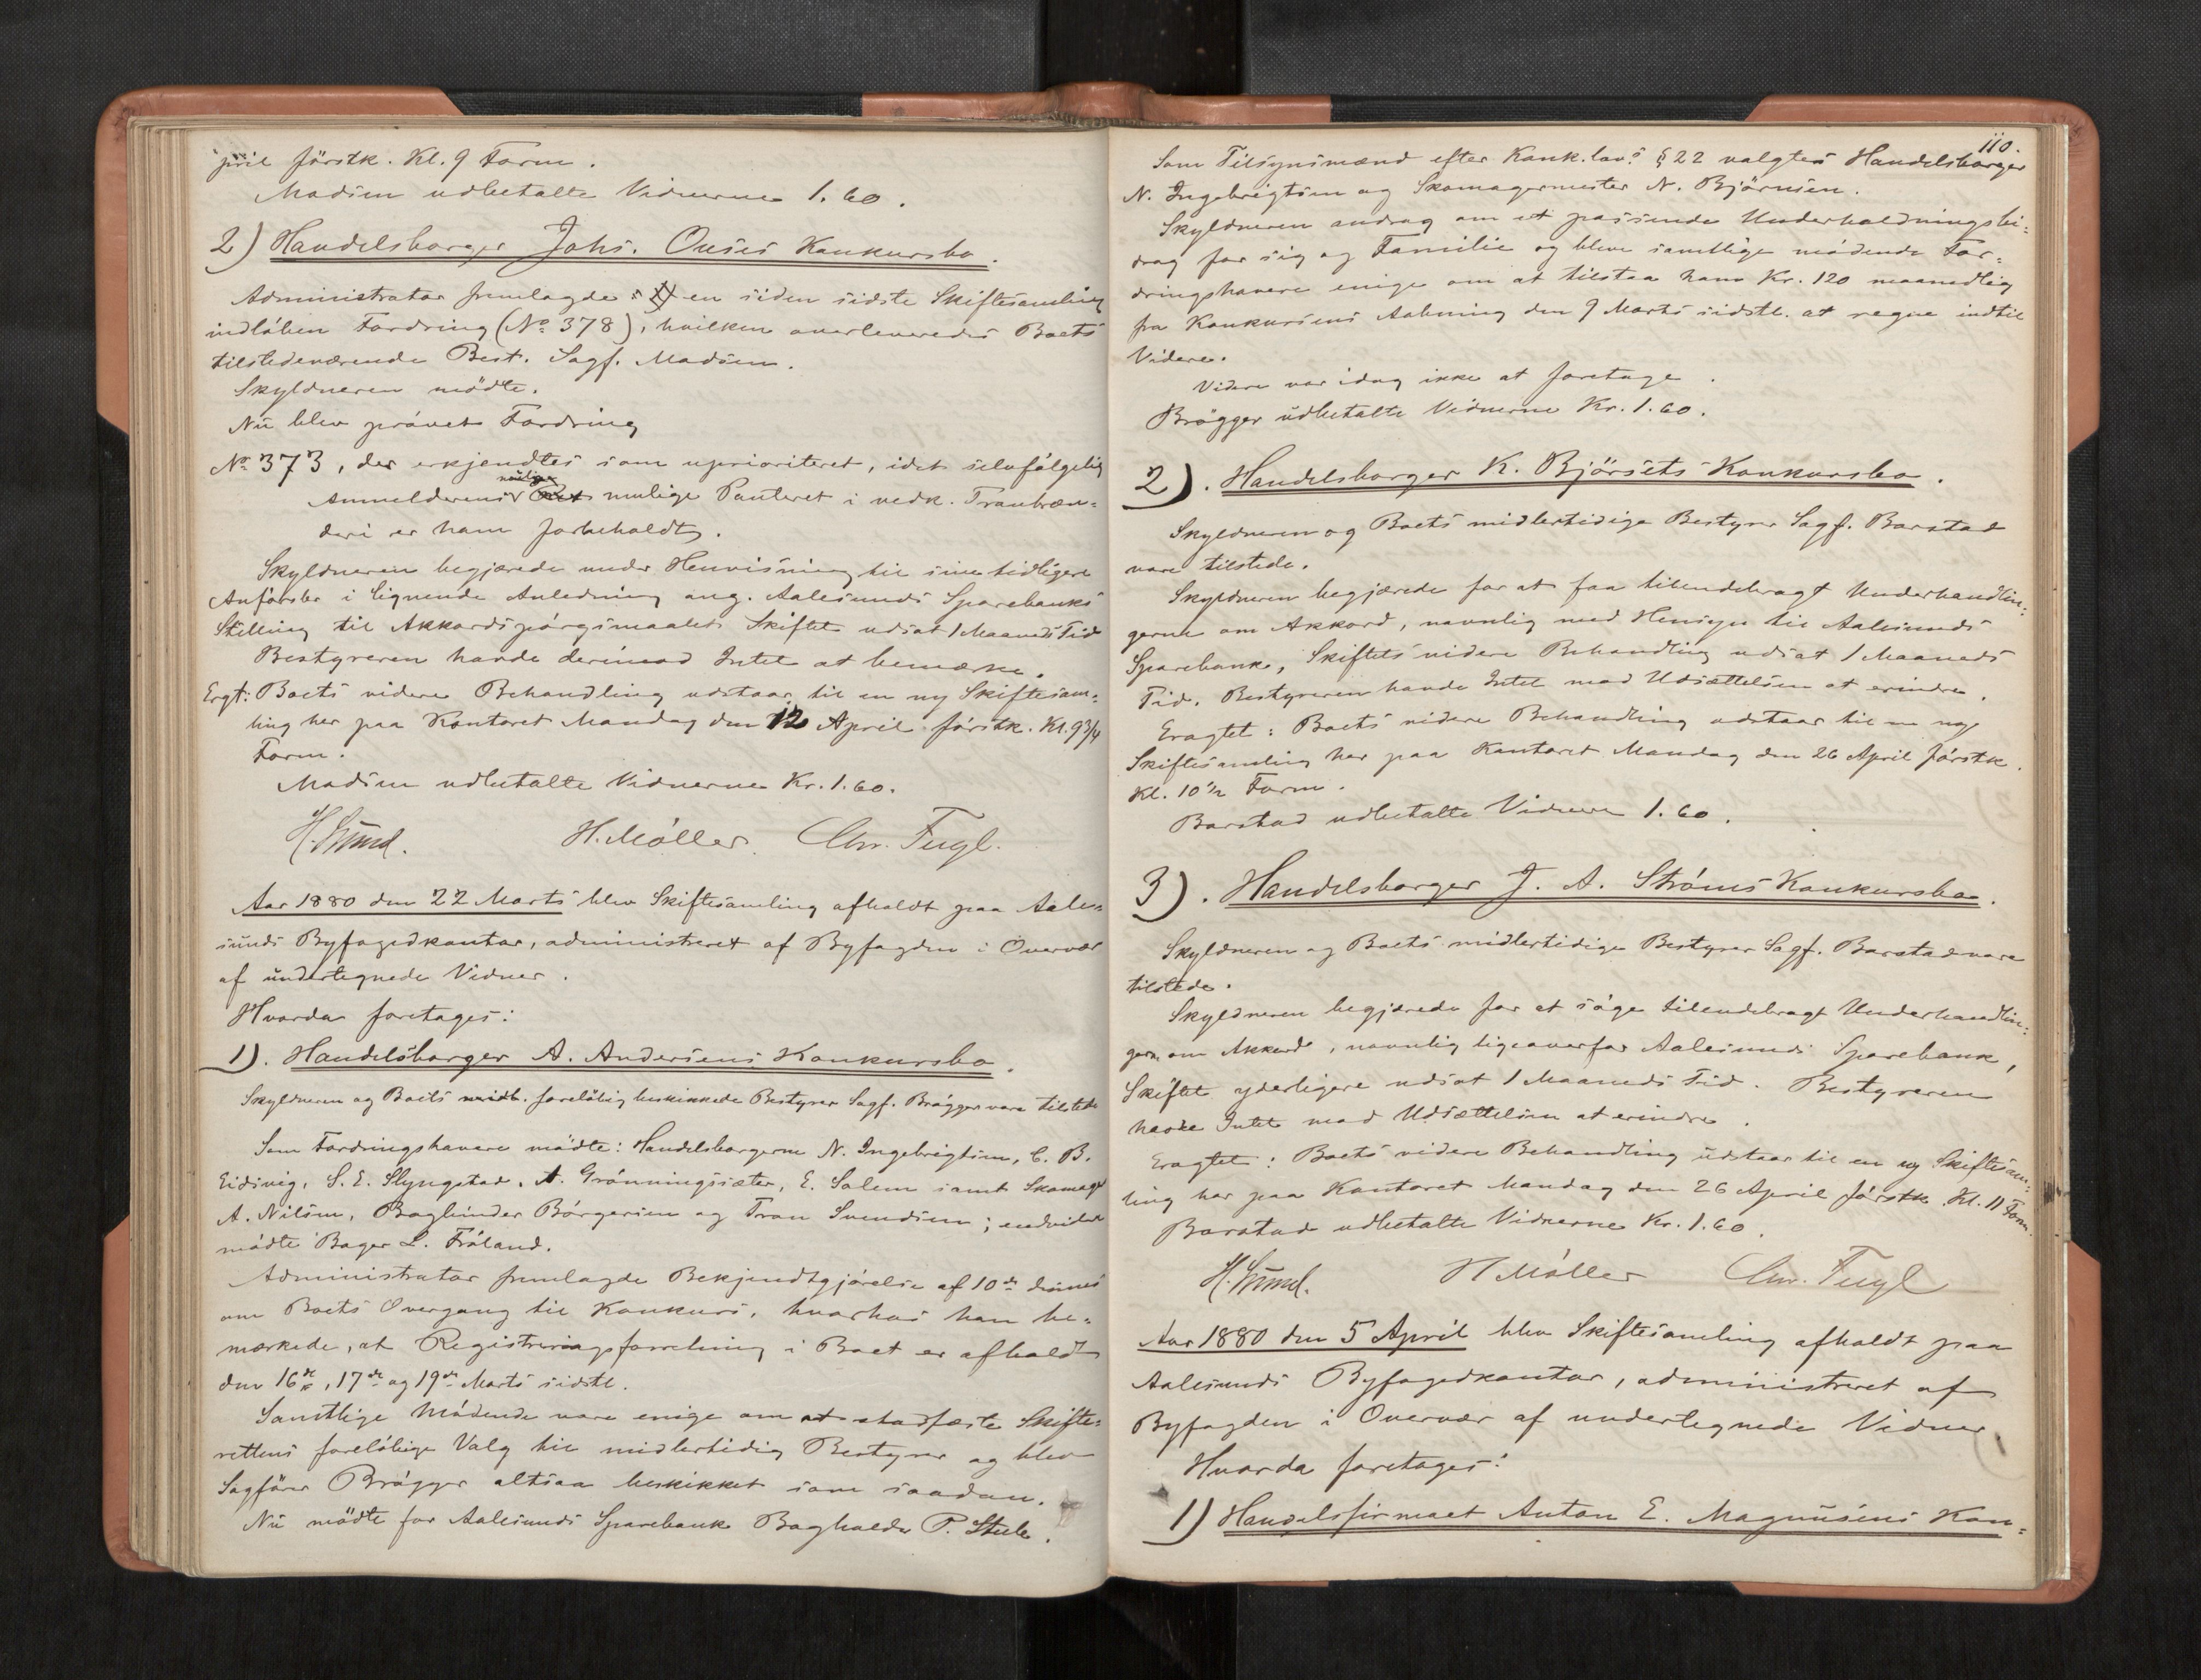 pril förstk. Kl. 9 Form.
Madsen udbetalte Vidnerne 1.60.
2) Handelsborger Johs. Ouses Konkursbo.
Administrator fremlagde en siden sidste Skiftesamling
indløben Fordring (No 378), hvilken overleveredes Boets
tilstedeværende Best. Sagf. Madsen.
Skyldneren mödte.
Nu blev prövet Fordring
No 373, der erkjendtes som uprioriteret, idet selvfølgelig
Anmelderens mulige Panteret i vedk. Tranbræn-
deri er ham forbeholdt.
Skyldneren begjærede under Henvisning til sine tidligere
Anförsler i lignende Anledning ang. Aalesunds Sparebanks
Stilling til Akkordspörgsmaalet Skiftet udsat 1 Maaneds Tid
Bestyreren havde derimod Intet at bemærke.
Ergt: Boets videre Behandling udstaar til en ny Skiftesam-
ling her paa Kontoret Mandag den 12 April förstk. Kl. 9 3/4
Form.
Madsen udbetalte Vidnerne Kr. 1.60.
H. Møller. Chr. Fugl.
Aar 1880 den 22 Marts blev Skiftesamling afholdt paa Aale-
sunds Byfogedkontor, administreret af Byfogden i Overvær
af undertegnede Vidner.
Hvorda foretages:
1). Handelsborger A. Andersens Konkursbo.
Skyldneren og Boets midl. foreløbig beskikkede Bestyrer Sagf. Brøgger vare tilstede
Som Fordringshavere mödte: Handelsborgerne N. Ingebrigtsen, C. B.
Eidsvig, S. E. Slyngstad, A. Grønningsæter, E. Solem samt Skomager
A. Nilsen, Bogbinder Börgesen og Tran Svendsen; endvidere
mödte Bager L. Fröland.
Administrator fremlagde Bekjendtgjörelse af 10de dennes
om Boets Overgang til Konkurs, hvorhos han be-
mærkede, at Registreringsforretning i Boet er afholdt
den 16de, 17de og 19de Marts sidstl.
Samtlige Mødende vare enige om at stadfæste Skifte-
rettens foreløbige Valg til midlertidig Bestyrer og blev
Sagfører Brøgger altsaa beskikket som saadan.
Nu mödte for Aalesunds Sparebank Bogholder P. Stub.
110.
Som Tilsynsmænd efter Konk. lov. § 22 valgtes Handelsborger
N. Ingebrigtsen og Skomagermester N. Björnsen.
Skyldneren androg om et passende Underholdningsbi-
drag for sig og Familie og bleve samtlige mødende For-
dringshavere enige om at tilstaa ham Kr. 120 maanedlig
fra Konkursens Aabning den 9 Marts sidstl. at regne indtil
Videre.
Videre var idag ikke at foretage.
Brögger udbetalte Vidnerne Kr. 1.60.
2). Handelsborger K. Björsets Konkursbo.
Skyldneren og Boets midlertidige Bestyrer Sagf. Barstad
vare tilstede.
Skyldneren begjærede for at faa tilendebragt Underhandlin-
gerne om Akkord, navnlig med Hensyn til Aalesunds
Sparebank, Skiftets videre Behandling udsat 1 Maaneds
Tid. Bestyreren havde Intet mod Udsættelsen at erindre.
Eragtet: Boets videre Behandling udstaar til en ny
Skiftesamling her paa Kontoret Mandag den 26 April förstk.
Kl. 10 1/2 Form.
Barstad udbetalte Vidnerne 1.60.
3). Handelsborger J. A. Ströms Konkursbo.
Skyldneren og Boets midlertidige Bestyrer Sagf. Barstad vare
tilstede.
Skyldneren begjærede for at söge tilendebragt Underhandlin-
gerne om Akkord, navnlig ligeoverfor Aalesunds Sparebank,
Skiftet yderligere udsat 1 Maaneds Tid. Bestyreren
havde Intet mod Udsættelsen at erindre.
Eragtet: Boets videre Behandling udstaar til en ny Skiftesam-
ling her paa Kontoret Mandag den 26 April förstk. Kl. 11 Form.
Barstad udbetalte Vidnerne Kr. 1.60.
H Møller Chr. Fugl
Aar 1880 den 5 April blev Skiftesamling afholdt paa
Aalesunds Byfogedkontor, administreret af
Byfogden i Overvær af undertegnede Vidner.
Hvorda foretages:
1) Handelsfirmaet Anton E. Magnusens Kon-